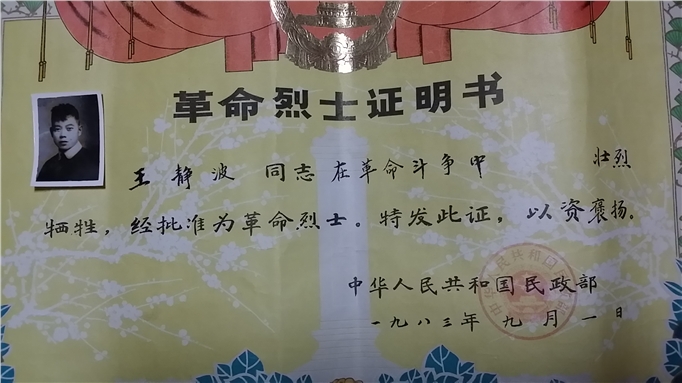 革命烈士证明书
王静波 同志在革命斗争中 壮烈
牺牲，经批准为革命烈士。特发此证，以资褒扬。
中华人民共和国民政部
一九八三年 九月一日